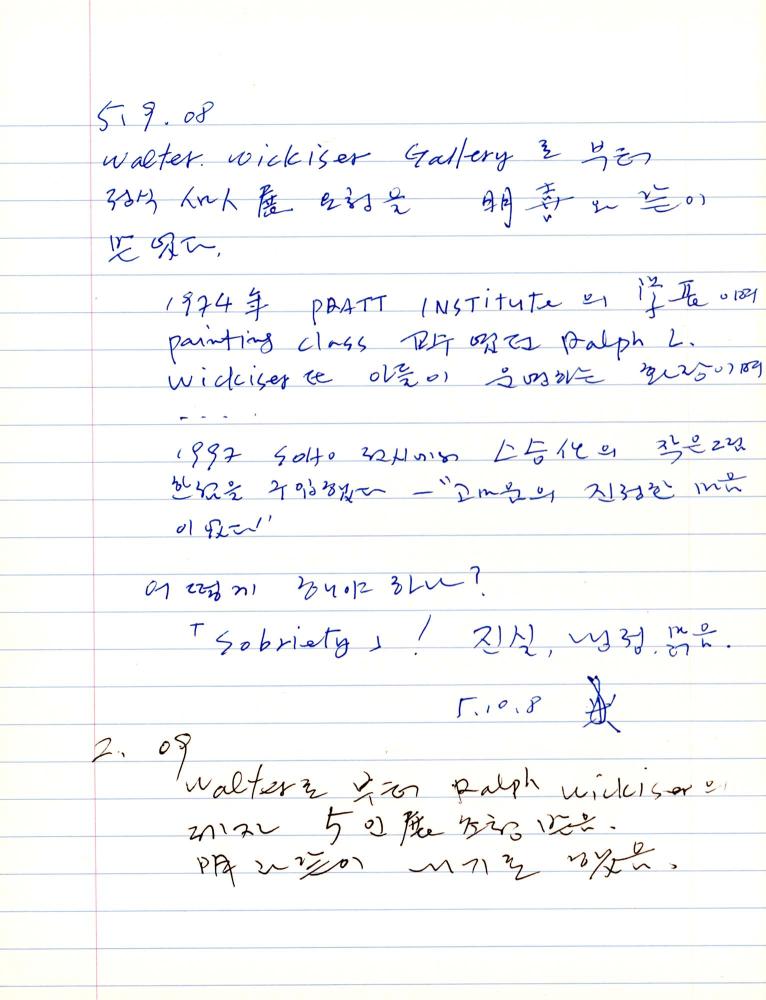 5. 9. 08
Walter. Wickiser Gallery 로 부터
정식 展 요청을 明喜 와 같이
받었다.
1974年 PRATT INSTitute 의 이며
painting class 교수 였던 Ralph L.
Wickiser 아들이 운영하는 화랑이며
....
1997 SOHO 전시에서 스승 의 작은그림
한점을 구입했다 —"고마움의 진정한 마음
이 였다"
어떻게 해야 하나?
「Sobriety」! 진실, 냉정, 맑음.
5.10.8
2. 09
Walter로 부터 Ralph Wickiser의
5인展 초청 받음.
明 과 같이 내기로 했음.